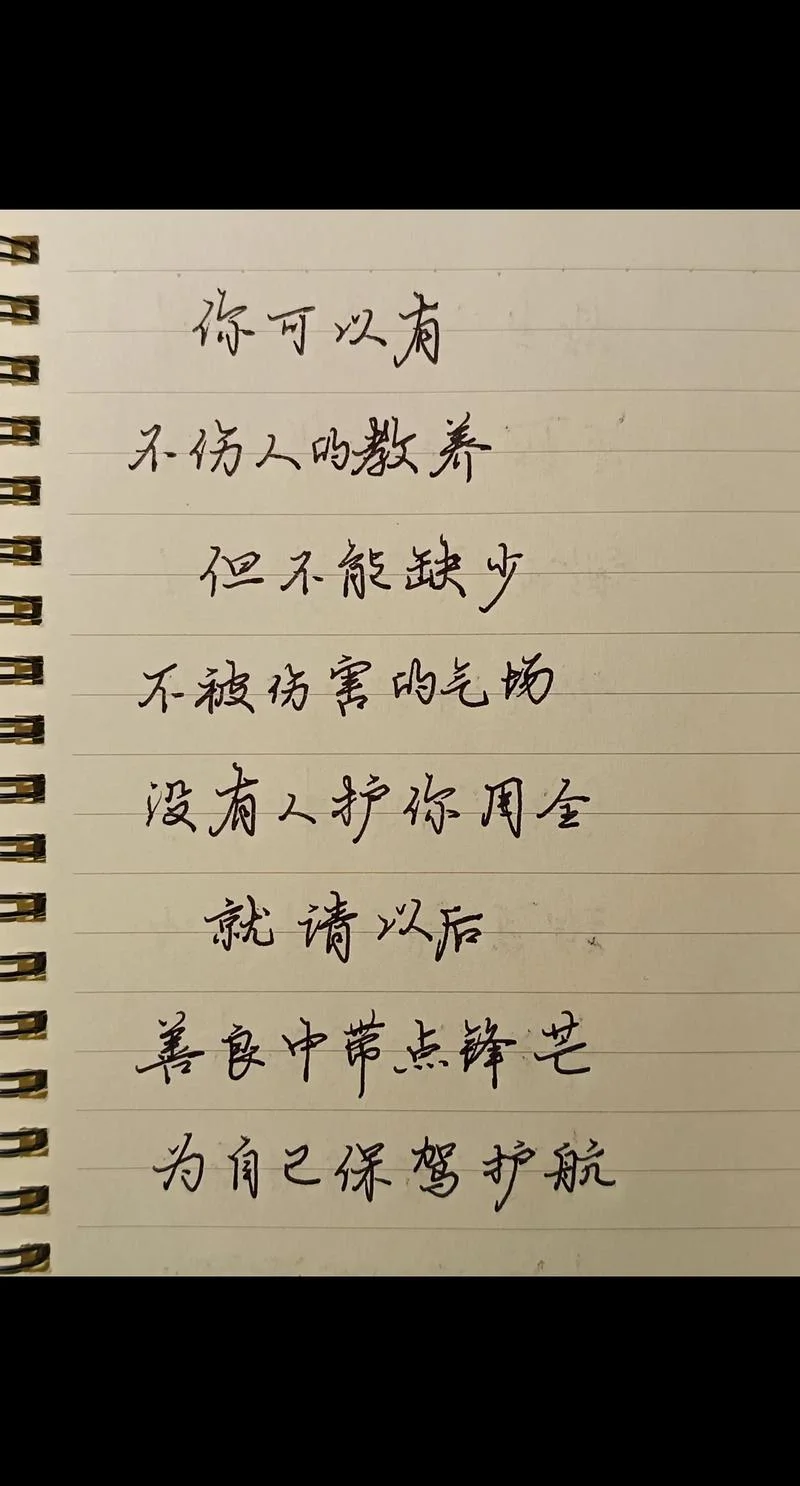 你可以有
不伤人的教养
但不能缺少
不被伤害的气场
没有人护你周全
就请以后
善良中带点锋芒
为自己保驾护航